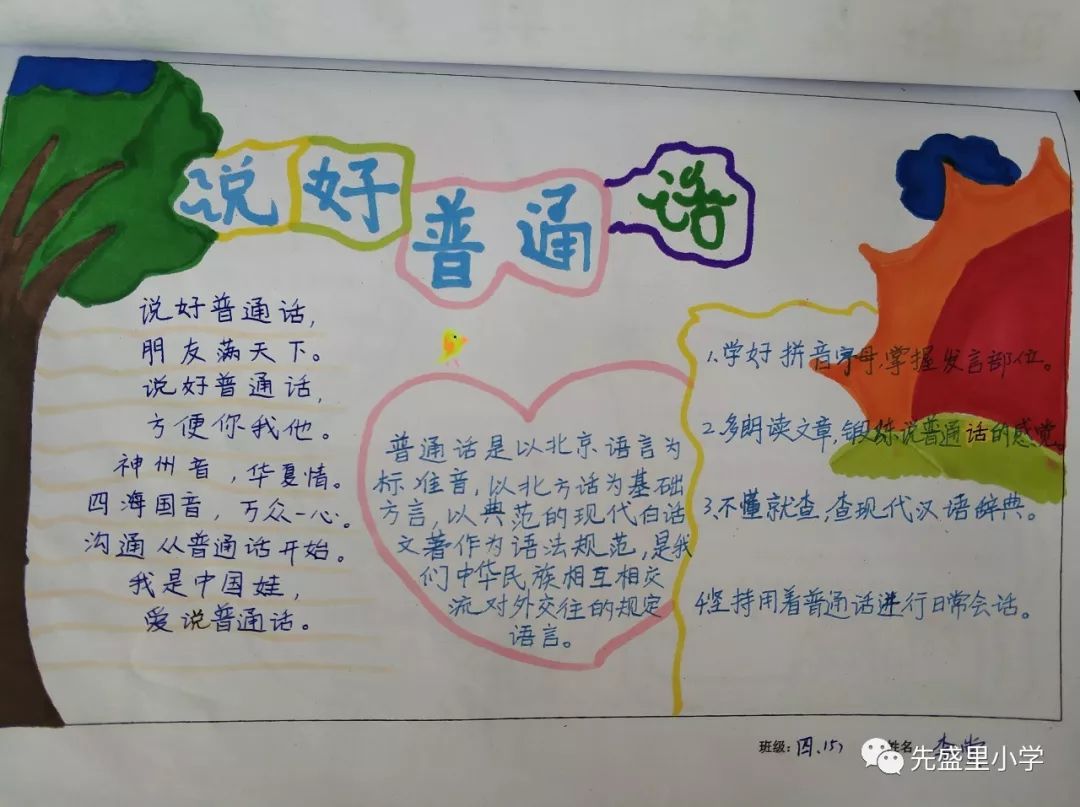 说好普通话
说好普通话，
朋友满天下。
说好普通话，
方便你我他。
神州音，华夏情。
四海国音，万众一心。
沟通从普通话开始。
我是中国娃，
爱说普通话。
普通话是以北京语言为
标准音，以北方话为基础
方言，以典范的现代白话
文著作为语法规范，是我
们中华民族相互相交
流对外交往的规定
语言。
1.学好拼音字母，掌握发言部位。
2.多朗读文章，锻练说普通话的感觉。
3.不懂就查，查现代汉语辞典。
4.坚持用着普通话进行日常会话。
班级：四、(5)
姓名
先盛里小学